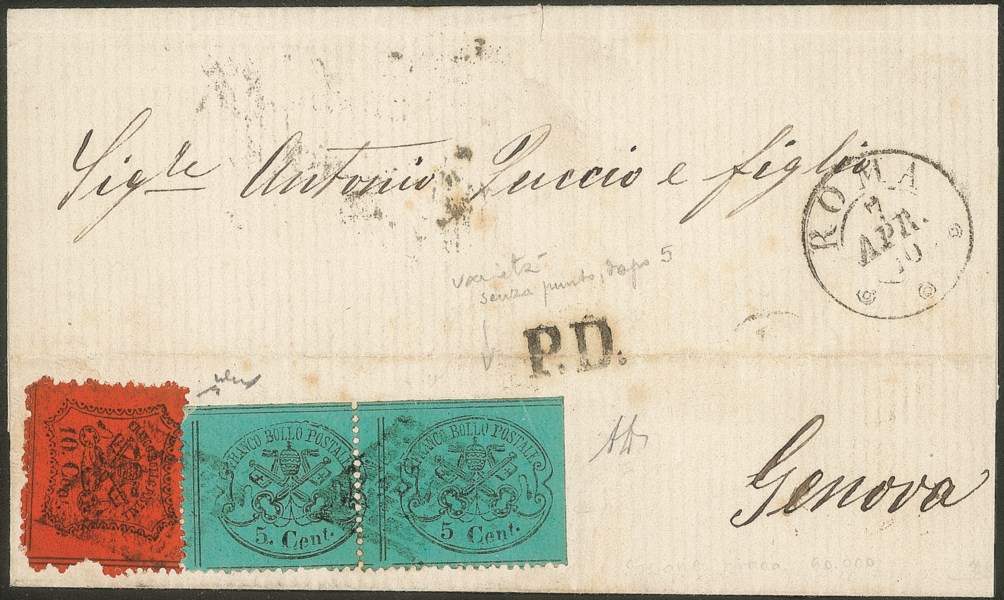 Sigre Antonio Puccio e figlio
ROMA
7
APR.
70
varietà
senza punto, dopo 5
P.D.
10. Cent.
FRANCO BOLLO POSTALE
5. Cent.
FRANCO BOLLO POSTALE
5 Cent.
Genova
50.000